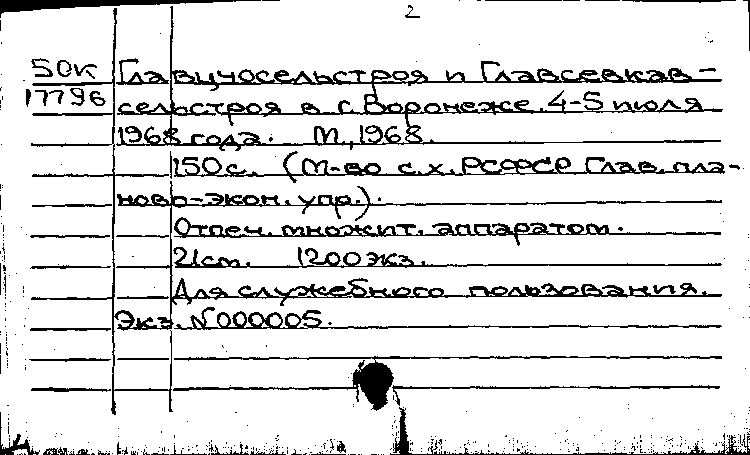 2
50к Главцчосельстроя и Главсевкав-
17796 сельстроя в г. Воронеже. 4-5 июля
1968 года. М., 1968.
150с. (М-во с.х. РСФСР Глав. пла-
ново-экон. упр.).
Отпеч. множит. аппаратом.
21см. 1200 экз.
Для служебного пользования.
Экз. №000005.